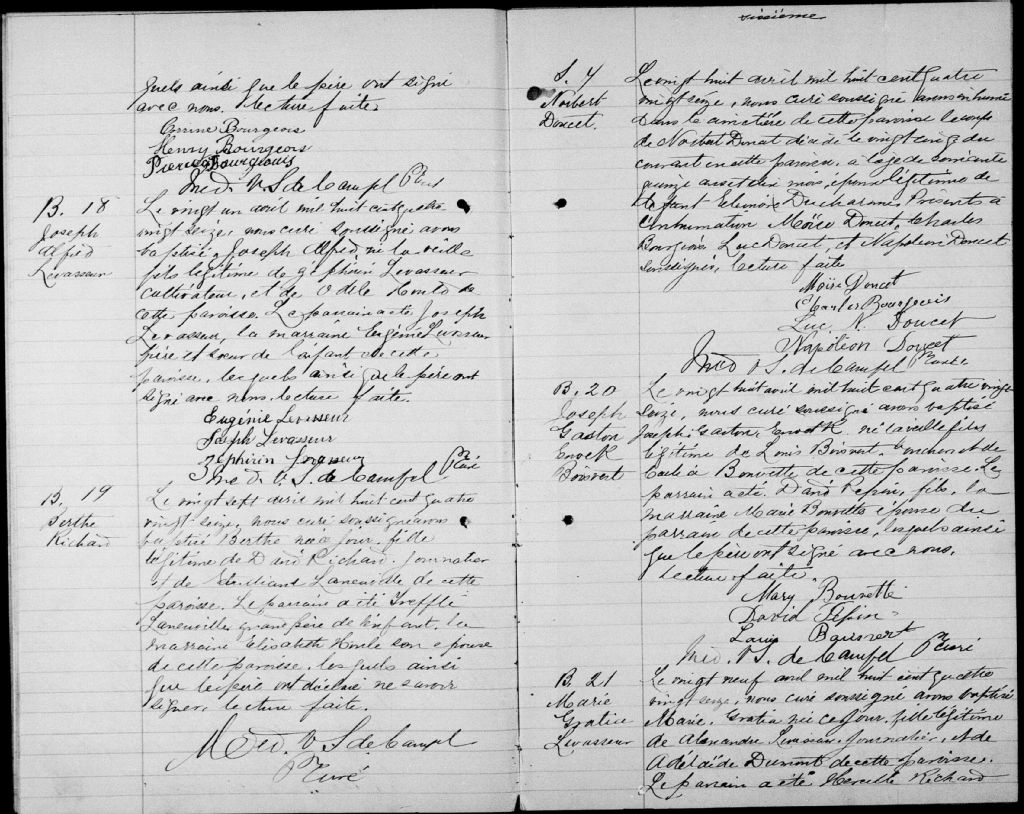 quels ainsi que le père ont signé
avec nous. Lecture faite
Corine Bourgeois
Henry Bourgeois
Pierre Bourgeois
Med. V S de Campl Ptre
B. 18
Joseph
Alfred
Levasseur
Le vingt un avril mil huit cent quatre
vingt seize, nous curé soussigné avons
baptisé Joseph Alfred, né la veille
fils légitime de Zéphirin Levasseur
cultivateur, et de Odile Houle de
cette paroisse. Le parrain a été Joseph
Levasseur, la marraine Eugénie Levasseur
frère et soeur de l'enfant de cette
paroisse, lesquels ainsi que le père ont
signé avec nous. Lecture faite.
Eugénie Levasseur
Joseph Levasseur
Zéphirin Levasseur
Med. V. S. de Campl Ptre Curé
B. 19
Berthe
Richard
Le vingt sept avril mil huit cent quatre
vingt seize, nous curé soussigné avons
baptisé Berthe née ce jour, fille
légitime de David Richard journalier
et de Laneuville de cette
paroisse. Le parrain a été Trefflé
Laneuville grand père de l'enfant, la
marraine Elisabeth Houle son épouse
de cette paroisse, lesquels ainsi
que le père ont déclaré ne savoir
signer, lecture faite.
Med. V S de Campl
Ptre Curé
sixième
S. 4
Norbert
Doucet.
Le vingt huit avril mil huit cent quatre
vingt seize, nous curé soussigné avons inhumé
dans le cimetière de cette paroisse le corps
de Norbert Doucet décédé le vingt cinq du
courant en cette paroisse, à l'age de soixante
quinze ans et dix mois, époux légitime de
défunt Eléonore Ducharme. Présents à
l'inhumation Moïse Doucet, Charles
Bourgeois Luc Doucet, et Napoléon Doucet
soussignés, lecture faite
Moïse Doucet
Charles Bourgeois
Luc. N. Doucet
Napoléon Doucet
Med V S. de Campl Ptre Curé
B. 20
Joseph
Gaston
Enock
Boisvert
Le vingt huit avril mil huit cent quatre vingt
seize, nous curé soussigné avons baptisé
Joseph Gaston, Enock né la veille fils
légitime de Louis Boisvert boucher et de
Bouvette de cette paroisse. Le
parrain a été David Pepin, fils, la
marraine Marie Bouvette épouse du
parrain de cette paroisse, lesquels ainsi
que le père ont signé avec nous,
Lecture faite.
Mary Bouvette
David Pepin
Louis Boisvert
Med. V S. de Campl Ptre Curé
B. 21
Marie
Gratia
Levasseur
Le vingt neuf avril mil huit cent quatre
vingt seize, nous curé soussigné avons baptisé
Marie, Gratia née ce jour, fille légitime
de Alexandre Levasseur journalier, et de
Adélaïde Dumont de cette paroisse.
Le parrain a été Richard